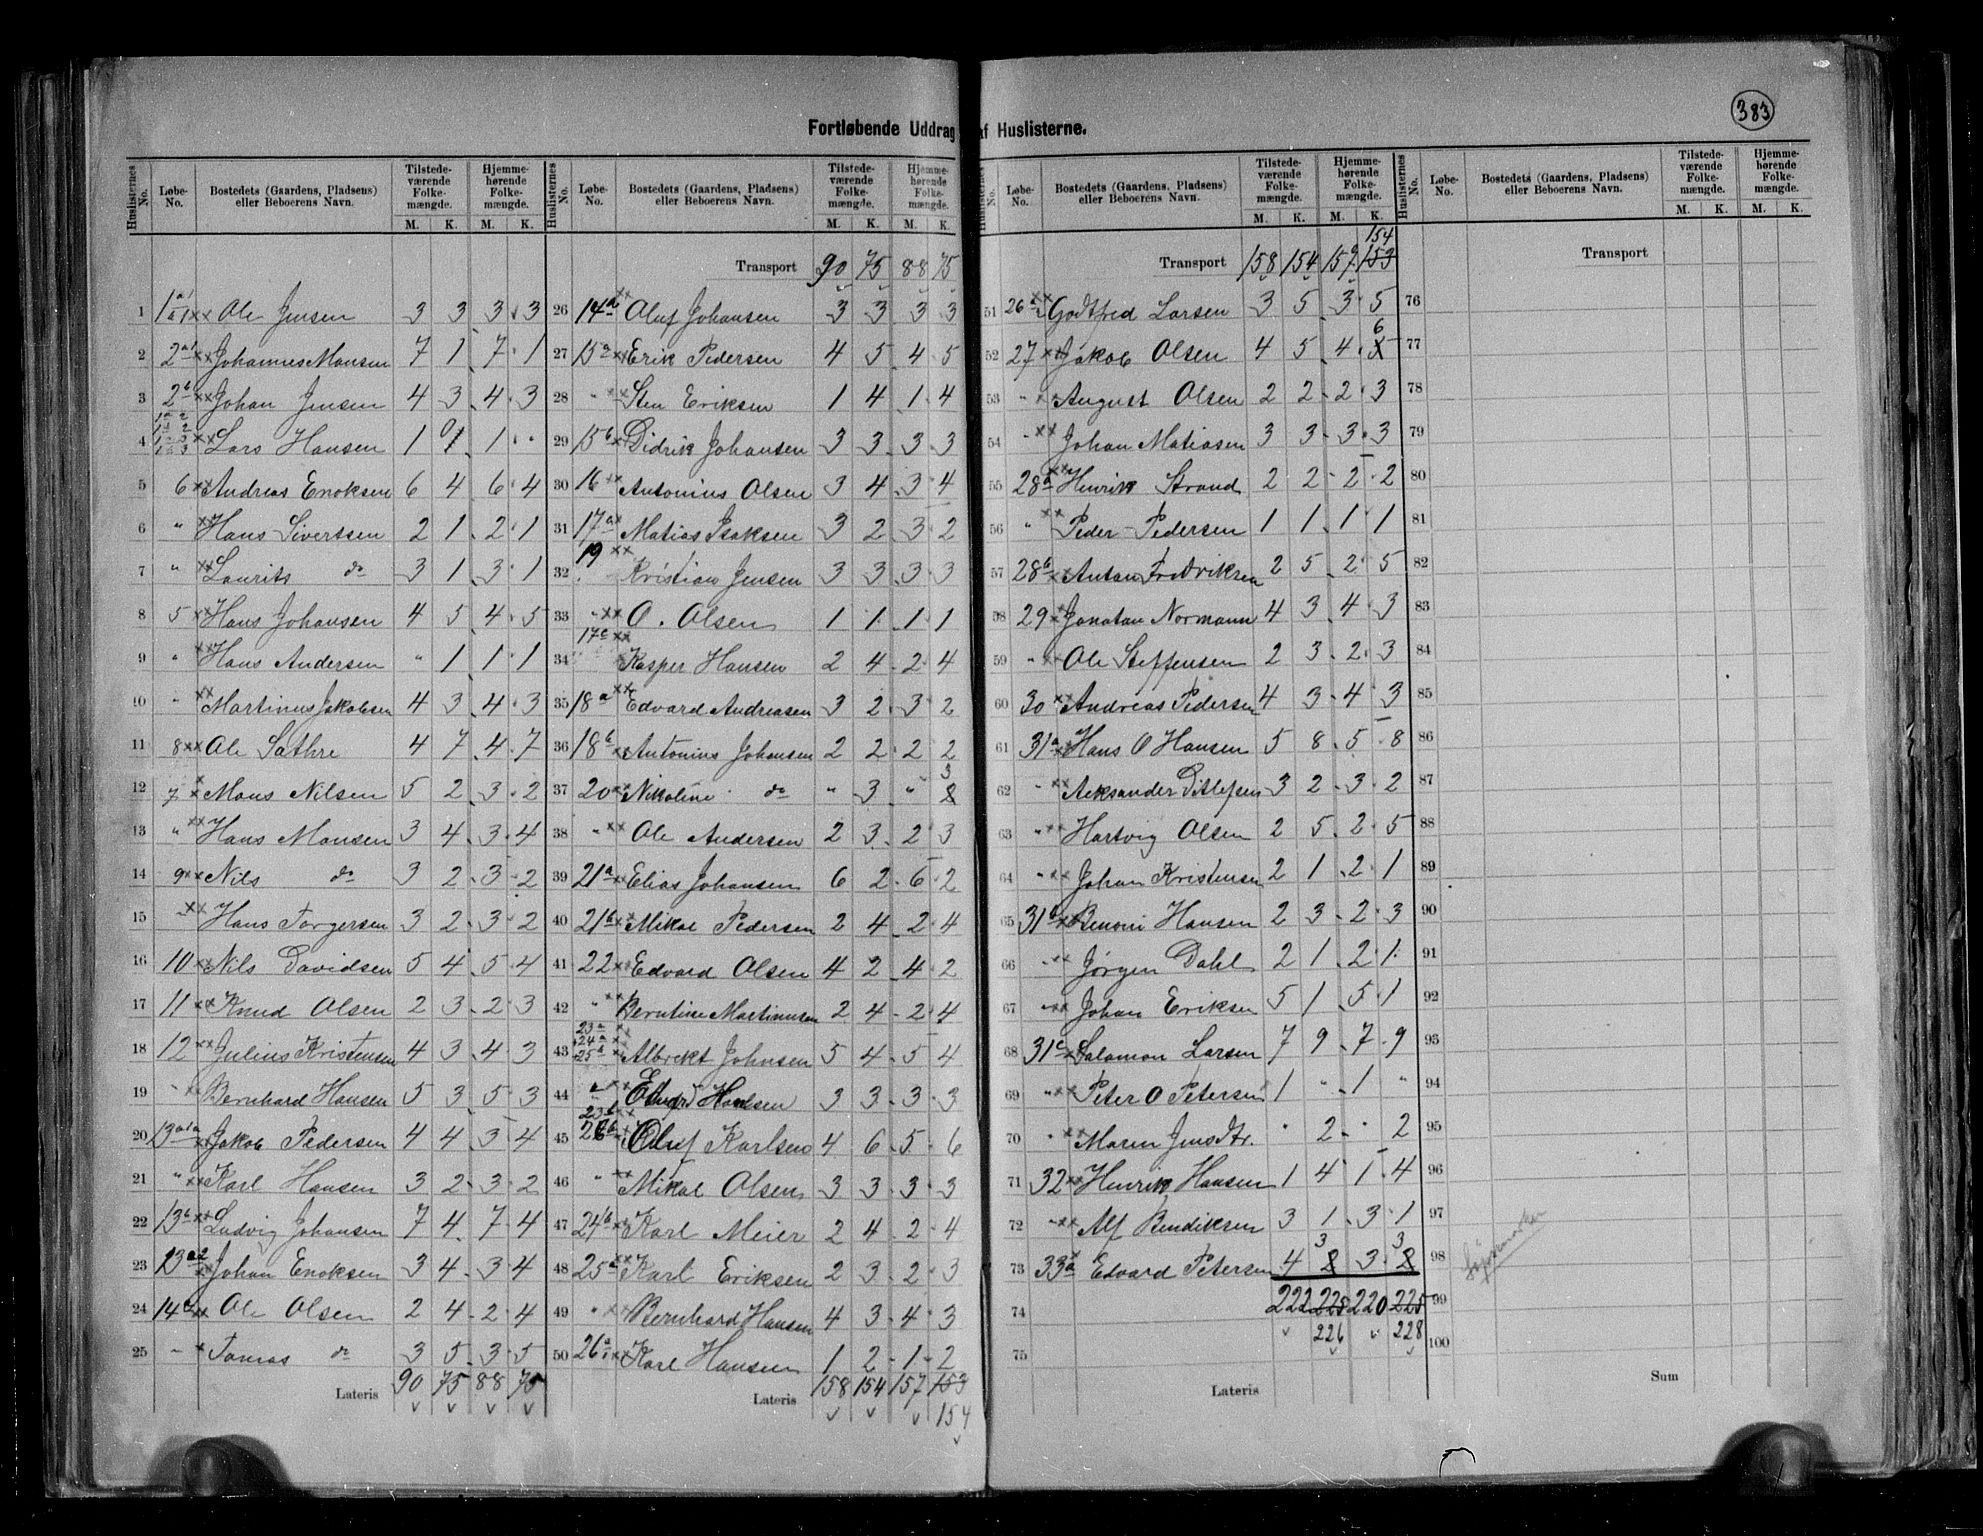 383
Fortløbende Uddrag af Huslisterne.
Huslisternes No. Løbe-No. Bostedets (Gaardens, Pladsens) eller Beboerens Navn. Tilstedeværende Folkemængde. M. K. Hjemmehørende Folkemængde. M. K.
1 Ole Jensen 3 3 3 3
2 2 Johannes Monsen 7 1 7 1
3 2b Johan Jensen 4 3 4 3
4 Lars Hansen 1 1
5 6 Andreas Enoksen 6 4 6 4
6 " Hans Sivertsen 2 1 2 1
7 " Laurits do 3 1 3 1
8 5 Hans Johansen 4 5 4 5
9 " Hans Andersen " 1 1 1
10 " Martinus Jakobsen 4 3 4 3
11 8 Ole Sathre 4 7 4 7
12 7 Mons Nilsen 5 2 3 2
13 " Hans Monsen 3 4 3 4
14 9 Nils do 3 2 3 2
15 " Hans Torgersen 3 2 3 2
16 10 Nils Davidsen 5 4 5 4
17 11 Knud Olsen 2 3 2 3
18 12 Julius Kristensen 4 3 4 3
19 " Bernhard Hansen 5 3 5 3
20 13 Jakob Pedersen 4 4 3 4
21 " Karl Hansen 3 2 3 2
22 13b Ludvig Johansen 7 4 7 4
23 13a2 Johan Enoksen 3 4 3 4
24 14a Ole Olsen 2 4 2 4
25 " Tomas do 3 5 3 5
Lateris 90 75 88 75
Huslisternes No. Løbe-No. Bostedets (Gaardens, Pladsens) eller Beboerens Navn. Tilstedeværende Folkemængde. M. K. Hjemmehørende Folkemængde. M. K.
Transport 90 75 88 75
26 14 Oluf Johansen 3 3 3 3
27 15a Erik Pedersen 4 5 4 5
28 " Sten Eriksen 1 4 1 4
29 15b Didrik Johansen 3 3 3 3
30 16 Antonius Olsen 3 4 3 4
31 17a Matias Isaksen 3 2 3 2
32 19 Kristian Jensen 3 3 3 3
33 " O. Olsen 1 1 1 1
34 17 Kasper Hansen 2 4 2 4
35 18a Edvard Andreasen 3 2 3 2
36 18b Antonius Johansen 2 2 2 2
37 20 Nikoline do " 3 " 3
38 " Ole Andersen 2 3 2 3
39 21a Elias Johansen 6 2 6 2
40 21b Mikal Pedersen 2 4 2 4
41 22 Edvard Olsen 4 2 4 2
42 " Berntine Martinusen 2 4 2 4
43 23a 24a 25b Albrekt Johnsen 5 4 5 4
44 Hansen 3 3 3 3
45 Oluf Karlsen 4 6 5 6
46 " Mikal Olsen 3 3 3 3
47 24b Karl Meier 2 4 2 4
48 25a Karl Eriksen 2 3 2 3
49 " Bernhard Hansen 4 3 4 3
50 26a Karl Hansen 1 2 1 2
Lateris 158 154 157 153
154
Huslisternes No. Løbe-No. Bostedets (Gaardens, Pladsens) eller Beboerens Navn. Tilstedeværende Folkemængde. M. K. Hjemmehørende Folkemængde. M. K.
154
Transport 158 154 157 153
51 26a Godtfred Larsen 3 5 3 5
52 27 Jakob Olsen 4 5 4 6
53 " August Olsen 2 2 2 3
54 " Johan Matiasen 3 3 3 3
55 28a Henrik Strand 2 2 2 2
56 " Peder Pedersen 1 1 1 1
57 28b Antan Fredriksen 2 5 2 5
58 29 Jonatan Normann 4 3 4 3
59 " Ole Steffensen 2 3 2 3
60 30 Andreas Pedersen 4 3 4 3
61 31a Hans O Hansen 5 8 5 8
62 " Aleksander Ditlefsen 3 2 3 2
63 " Hartvig Olsen 2 5 2 5
64 " Johan Kristensen 2 1 2 1
65 31b Benoni Hansen 2 3 2 3
66 " Jørgen Dahl 2 1 2 1
67 " Johan Eriksen 5 1 5 1
68 31c Salamon Larsen 7 9 7 9
69 " Peter O Petersen 1 " 1 "
70 " Maren Jensdtr. " 2 " 2
71 32 Henrik Hansen 1 4 1 4
72 " Alf Bendiksen 3 1 3 1
73 33a Edvard Petersen 4 3 3 3
74 222 225 220 225
226 228
75
Lateris
Huslisternes No. Løbe-No. Bostedets (Gaardens, Pladsens) eller Beboerens Navn. Tilstedeværende Folkemængde. M. K. Hjemmehørende Folkemængde. M. K.
Transport
76
77
78
79
80
81
82
83
84
85
86
87
88
89
90
91
92
93
94
95
96
97
98
99
100
Sum